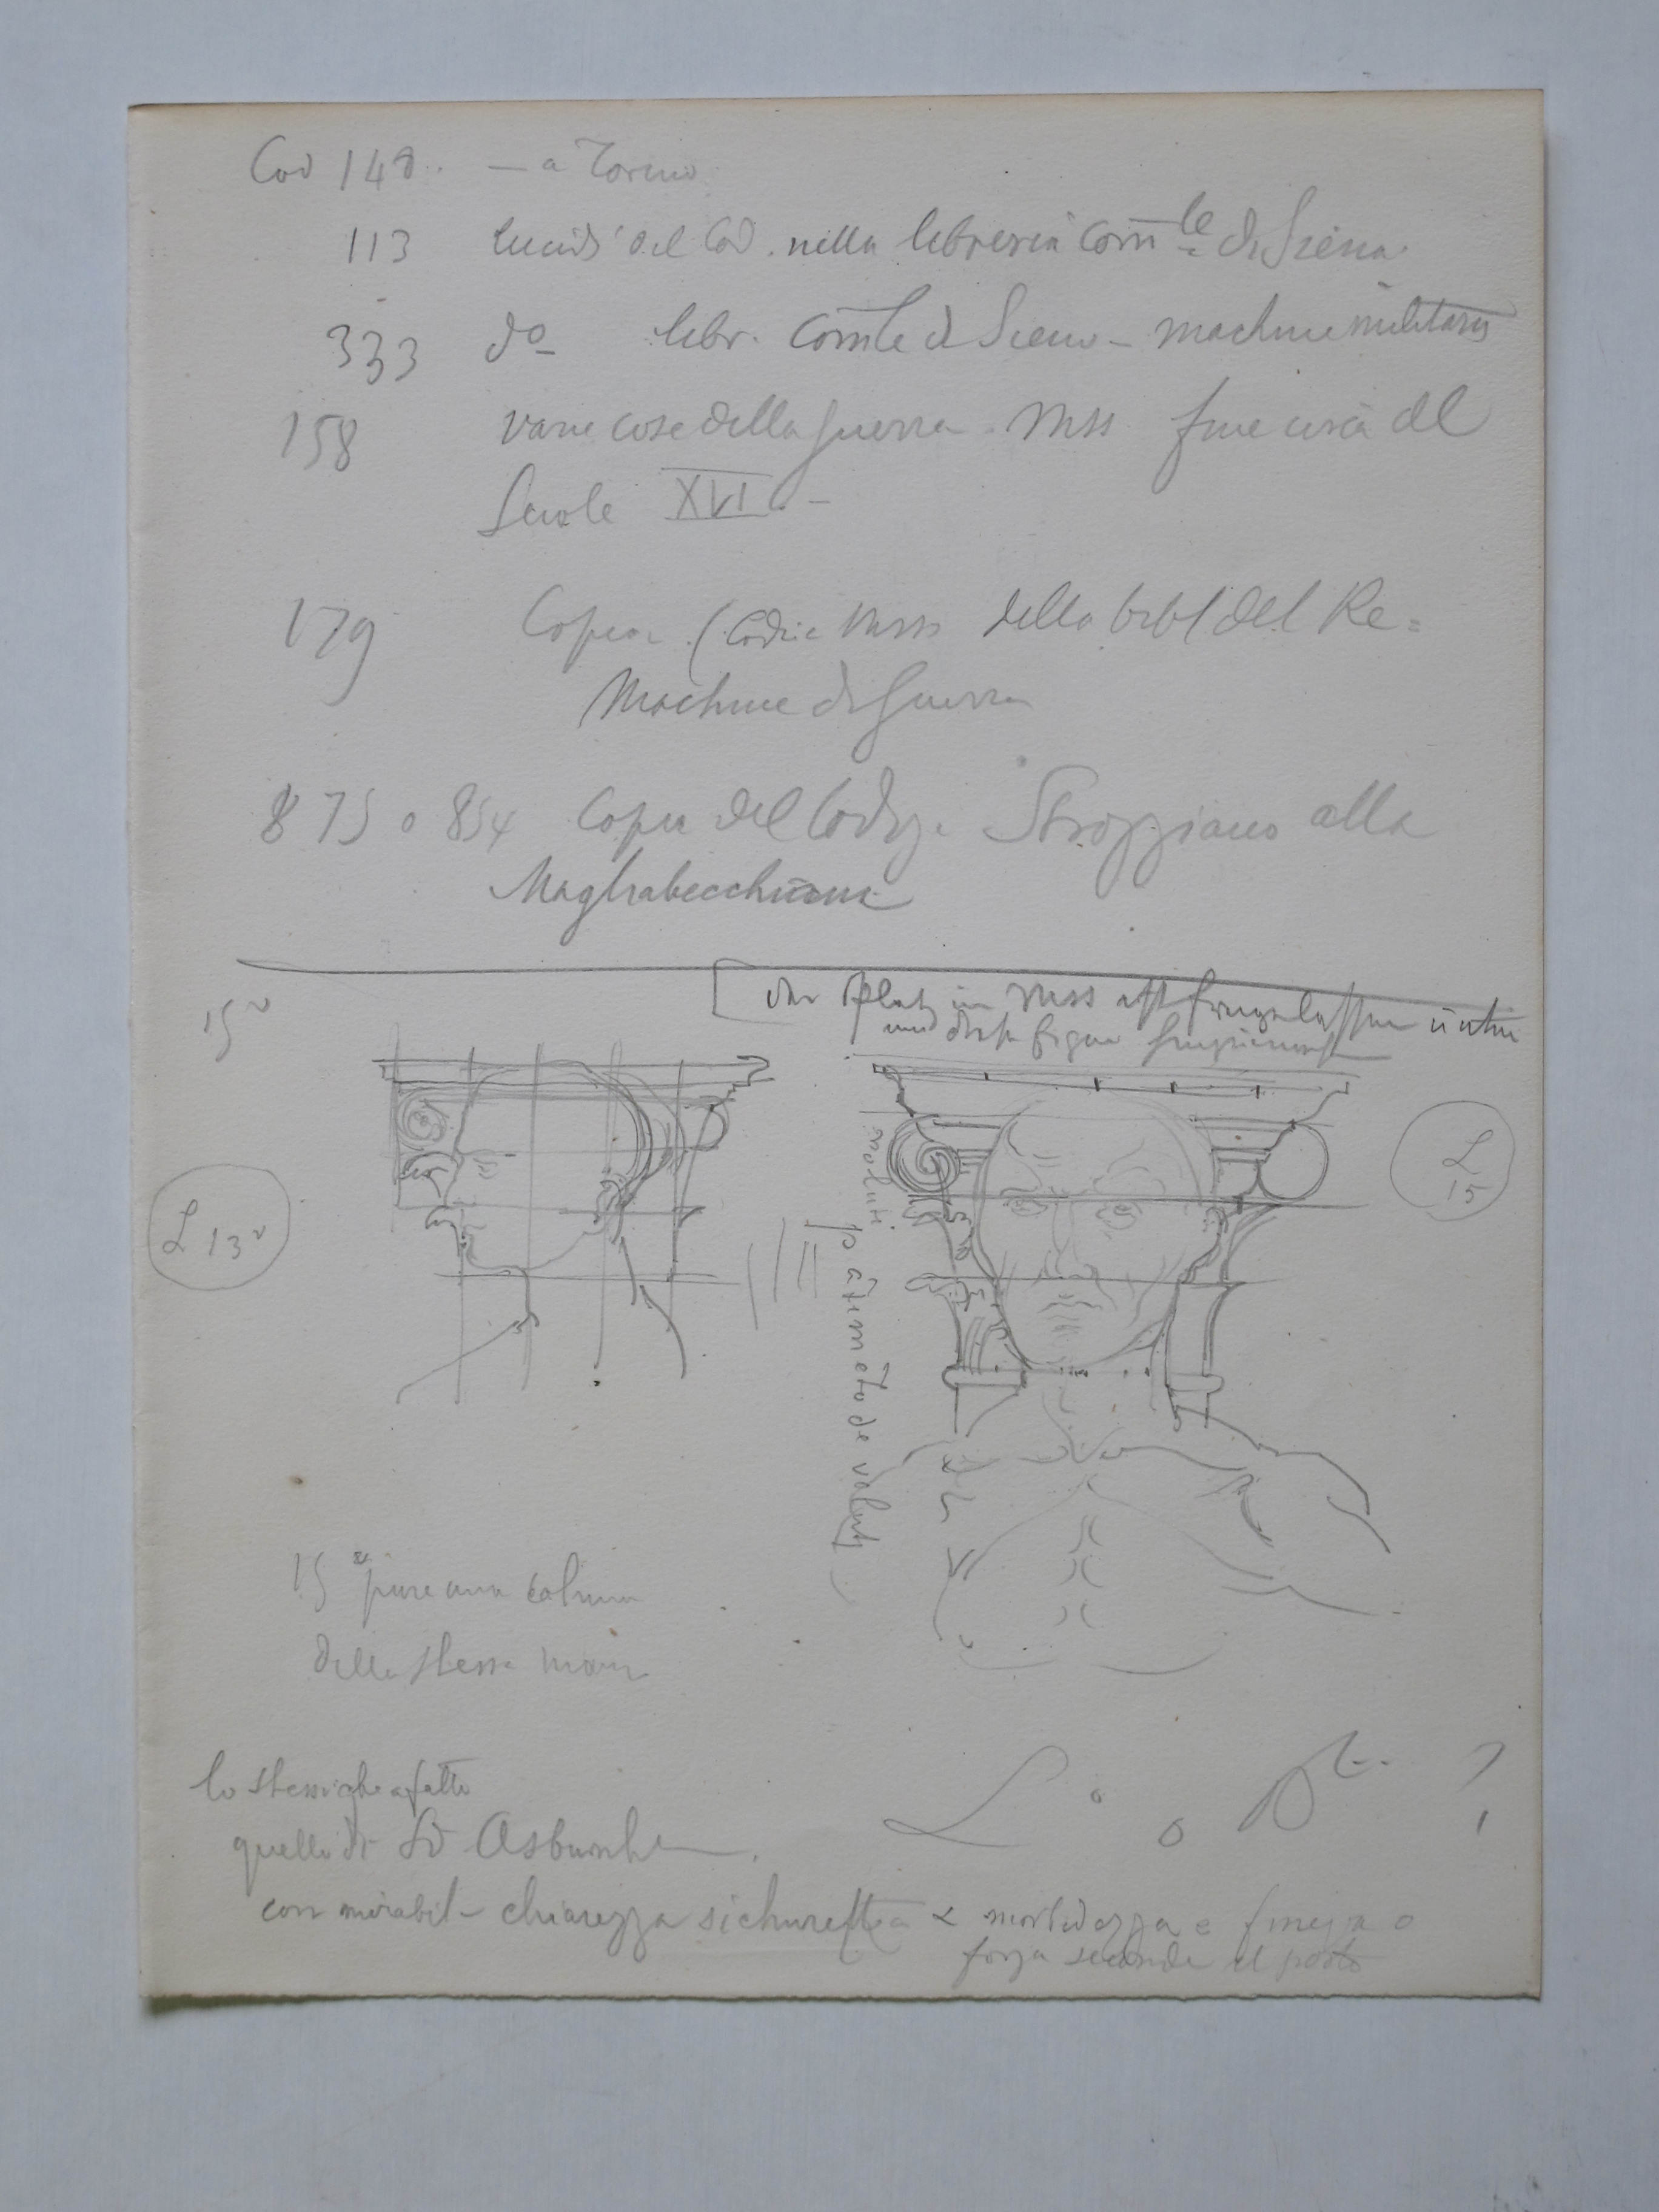 Cod 148. — a Torino
113 lucidi del Cod. nella libreria Com̅le di Siena
333 do libr. Com̅le d Siena — machine militari
158 varie cose della guerra. Mss fine circa del
Secole XVI —
179 Copia (Codice Mss della bibl del Re =
Machine di Guerra
875 o 854 Copia del Codiz. Strozziano alla
Magliabecchiana
15v
der Platz im Mss ist
und diese Figur
L 13v
L 15
voluti
15v pure una
della stessa mano
lo stesso che a fatto
quello di Ld Asburnh
L o ?
con mirabil— chiarezza sichurezza & morbidezza e finezza o
forza secondo el posto